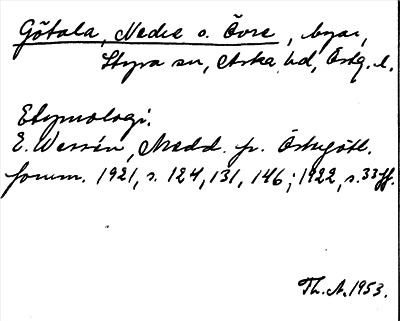 Götala, Nedre o. Övre, byar,
Styra sn, Aska hd, Östg. l.
Etymologi.
E. Wessén, Medd. fr. Östergötl.
fornm. 1921, s. 124, 131, 146; 1922, s. 33 ff.
Th. A. 1953.